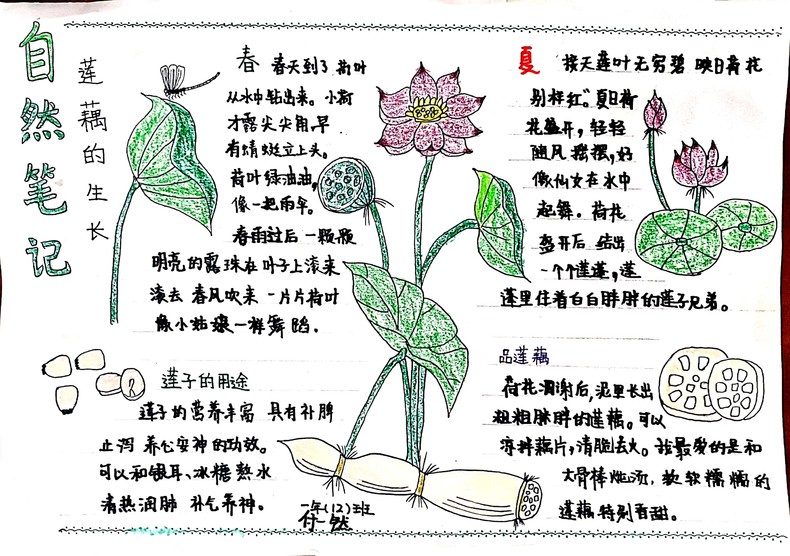 自然笔记
莲藕的生长
春 春天到了 荷叶
从水中钻出来。小荷
才露尖尖角,早
有蜻蜓立上头。
荷叶绿油油,
像一把雨伞。
春雨过后 一颗颗
明亮的露珠在叶子上滚来
滚去 春风吹来 一片片荷叶
像小姑娘一样舞蹈.
夏 接天莲叶无穷碧 映日荷花
别样红".夏日荷
花盛开,轻轻
随风摇摆,好
像仙女在水中
起舞.荷花
盛开后 结出
一个个莲蓬,莲
蓬里住着白白胖胖的莲子兄弟。
莲子的用途
莲子的营养丰富 具有补脾
止泻 养心安神的功效。
可以和银耳、冰糖熬水
清热润肺 补气养神。
品莲藕
荷花凋谢后,泥里长出
粗粗胖胖的莲藕。可以
凉拌藕片,清脆去火。我最爱的是和
大骨棒炖汤,软软糯糯的
莲藕特别香甜。
一年(12)班
付一然